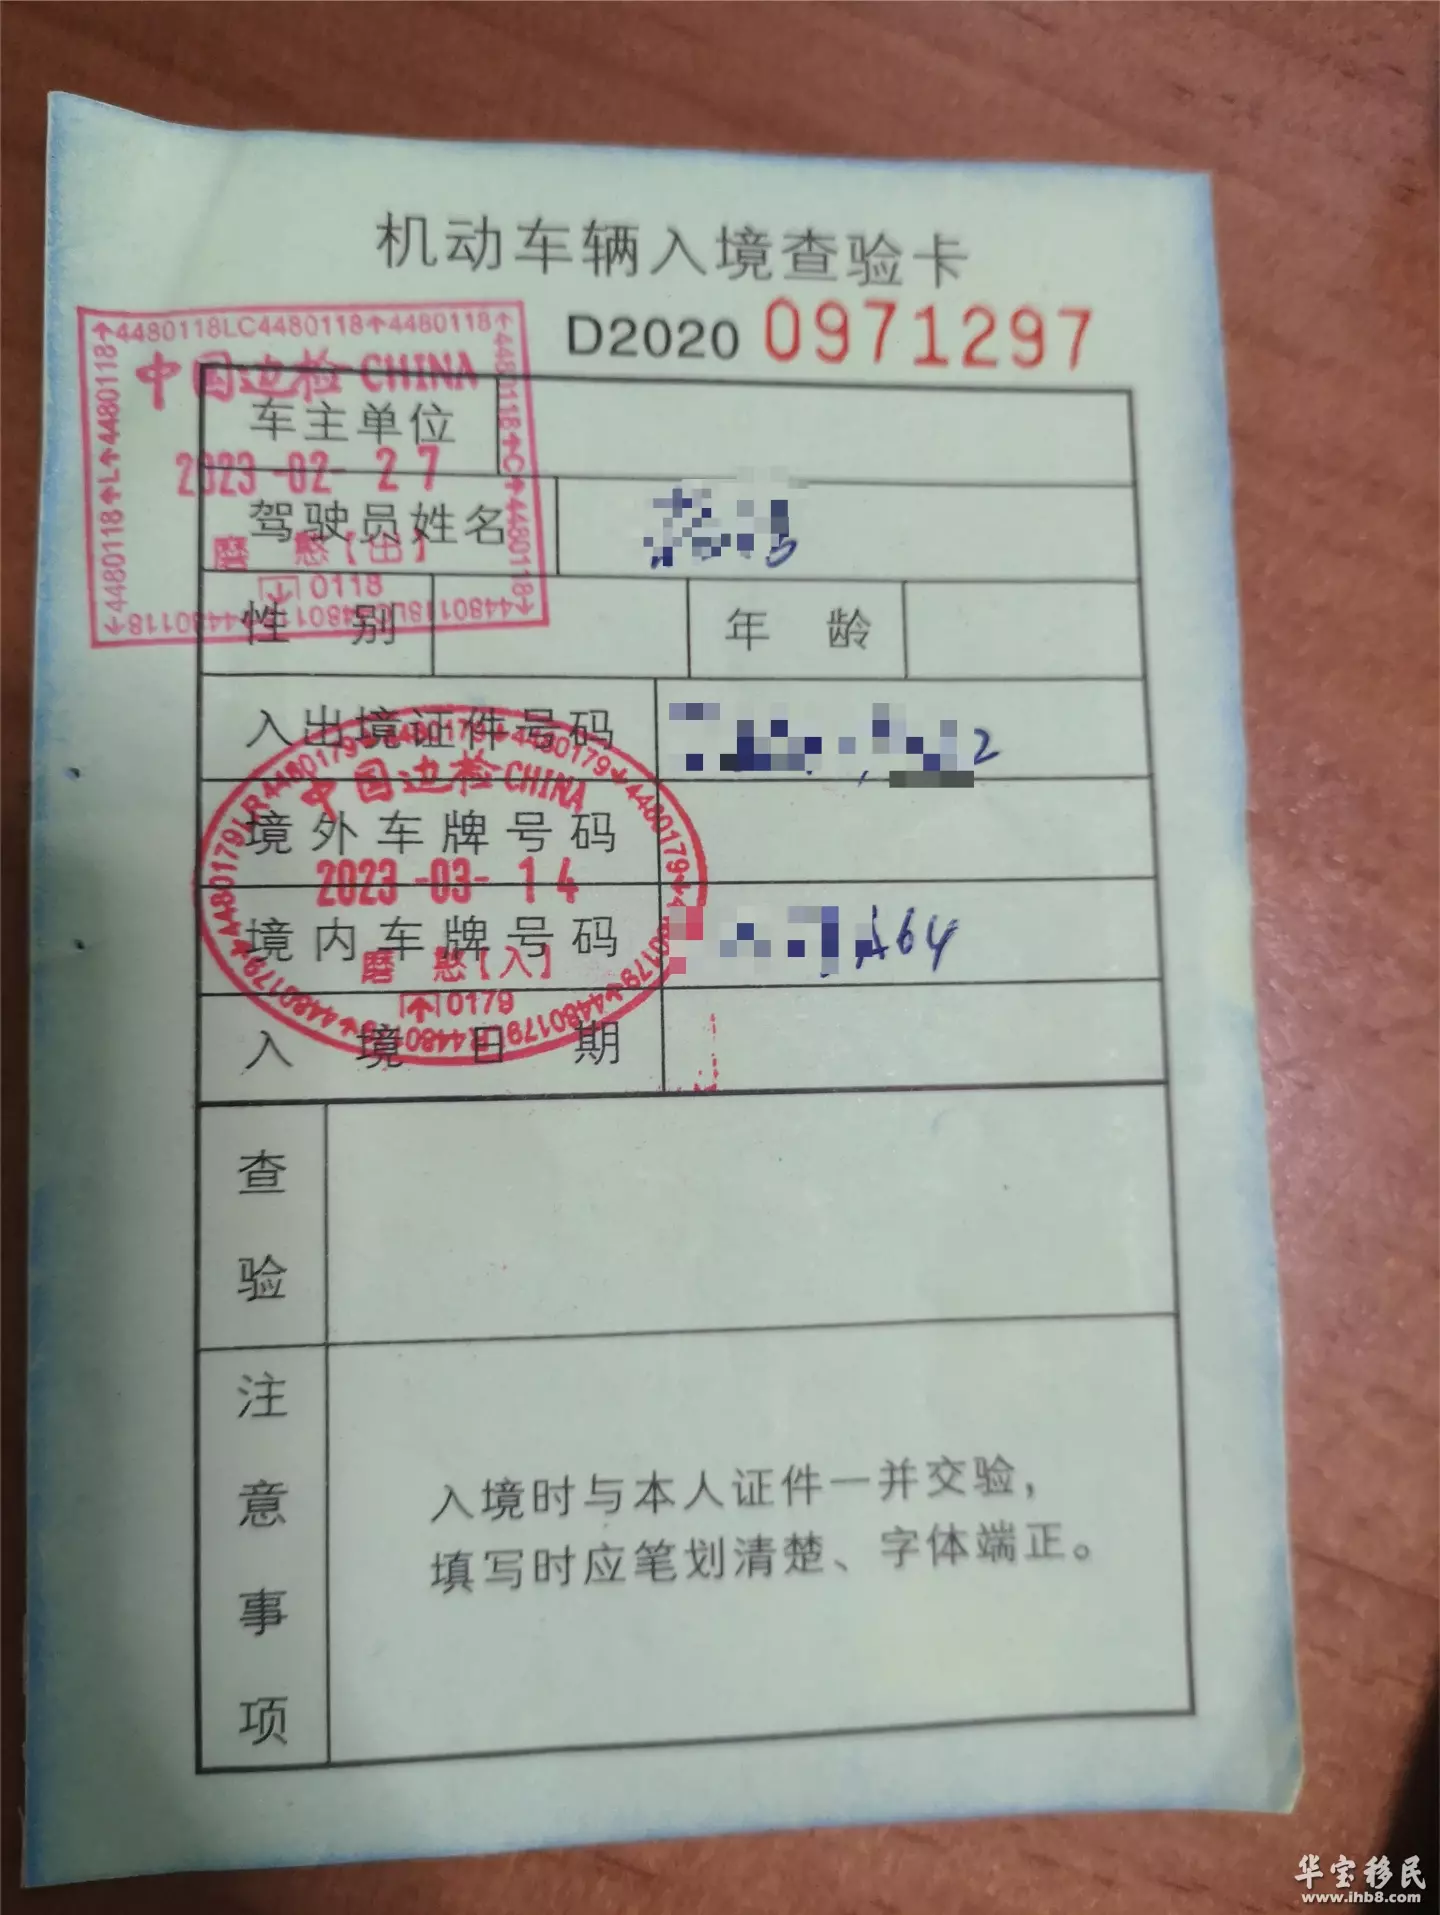 机动车辆入境查验卡
D2020 0971297
4480118LC4480118↑4480118↑
中国边检 CHINA
车主单位
2023-02-27
驾驶员姓名
磨憨【出】
0118
性别 年龄
入出境证件号码 2
中国边检 CHINA
境外车牌号码
2023-03-14
境内车牌号码 A64
磨憨【入】
0179
入境日期
查验
注意事项
入境时与本人证件一并交验，
填写时应笔划清楚、字体端正。
华宝移民
www.ihb8.com